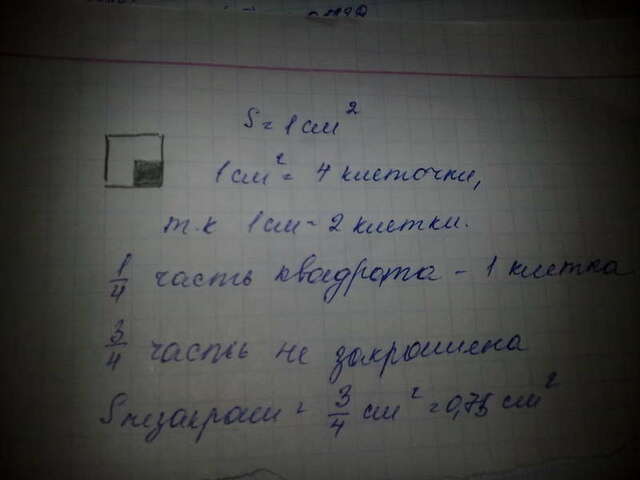 S = 1 см²
1 см² = 4 клеточки,
т.к 1 см - 2 клетки.
1/4 часть квадрата - 1 клетка
3/4 часть не закрашена
S незакраш = 3/4 см² = 0,75 см²